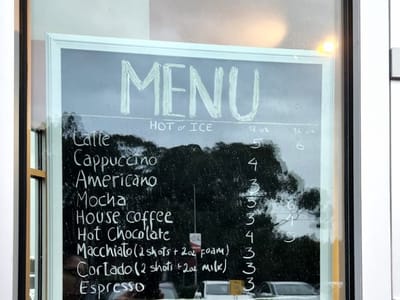 MENU
HOT or ICE 12 oz 16 oz
Latte 5 6
Cappuccino 4
Americano 3
Mocha 5
House coffee 3 4
Hot Chocolate 4
Macchiato (2 shots + 2oz foam) 3
Cortado (2 shots + 2oz milk) 3
Espresso 3